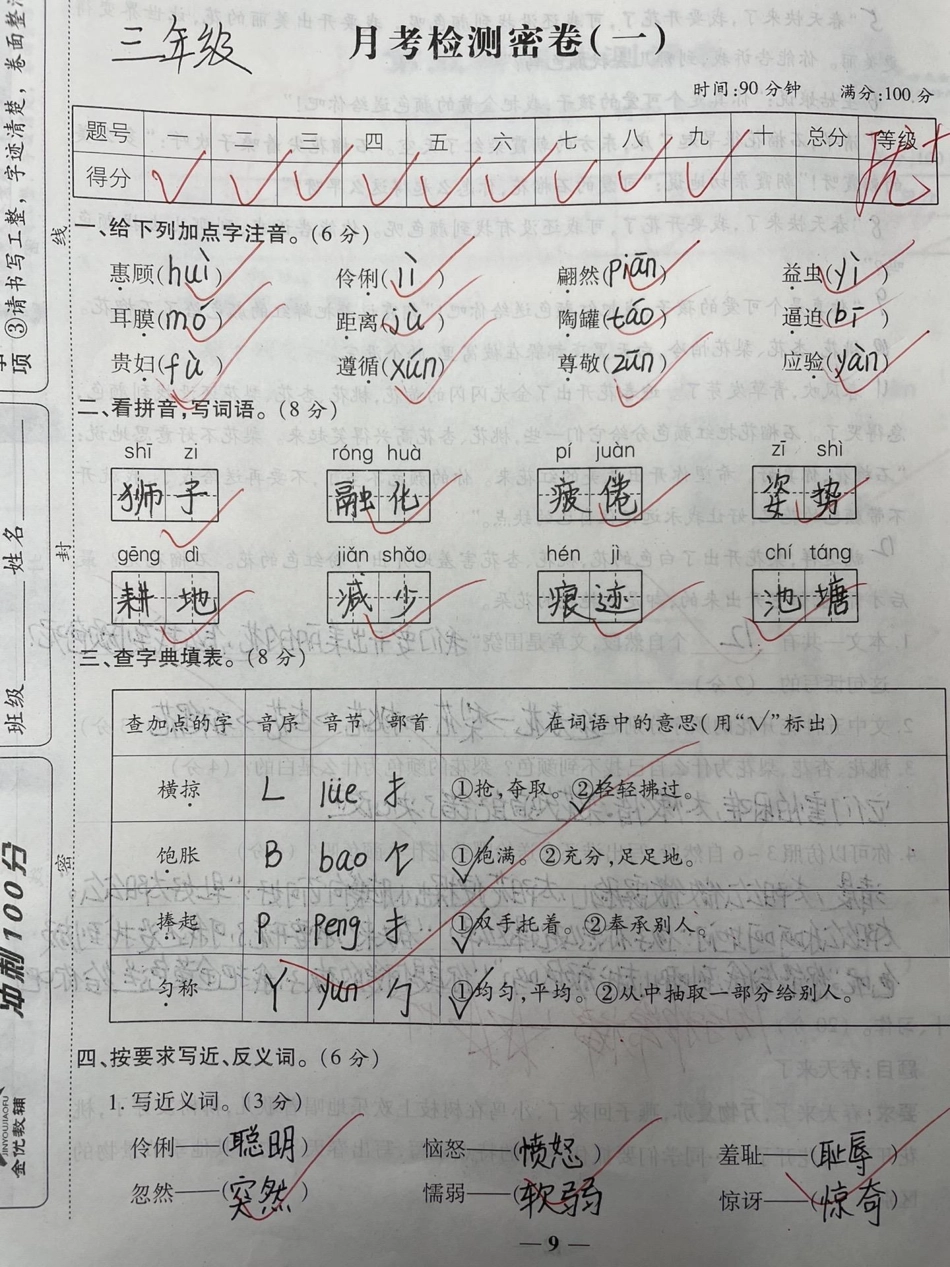 三年级
月考检测密卷(一)
时间:90分钟 满分:100分
题号 一 二 三 四 五 六 七 八 九 十 总分 等级
得分 √ √ √ √ √ √ √ √
一、给下列加点字注音。(6分)
惠顾(huì) 伶俐(lì) 翩然(piān) 益虫(yì)
耳膜(mó) 距离(jù) 陶罐(táo) 逼迫(bī)
贵妇(fù) 遵循(xún) 尊敬(zūn) 应验(yàn)
二、看拼音,写词语。(8分)
shī zi róng huà pí juàn zī shì
狮子 融化 疲倦 姿势
gēng dì jiǎn shǎo hén jì chí táng
耕地 减少 痕迹 池塘
三、查字典填表。(8分)
查加点的字 音序 音节 部首 在词语中的意思(用“√”标出)
横掠 L lüe 扌 ①抢,夺取。②轻轻拂过。
饱胀 B bao 饣 ①饱满。②充分,足足地。
捧起 P peng 扌 ①双手托着。②奉承别人。
匀称 Y yun 勹 ①均匀,平均。②从中抽取一部分给别人。
四、按要求写近、反义词。(6分)
1.写近义词。(3分)
伶俐——(聪明) 恼怒——(愤怒) 羞耻——(耻辱)
忽然——(突然) 懦弱——(软弱) 惊讶——(惊奇)
— 9 —
③请书写工整,字迹清楚,卷面整
项
线
封
密
姓名
班级
冲刺100分
JINYOUJIAOFU
金优教辅